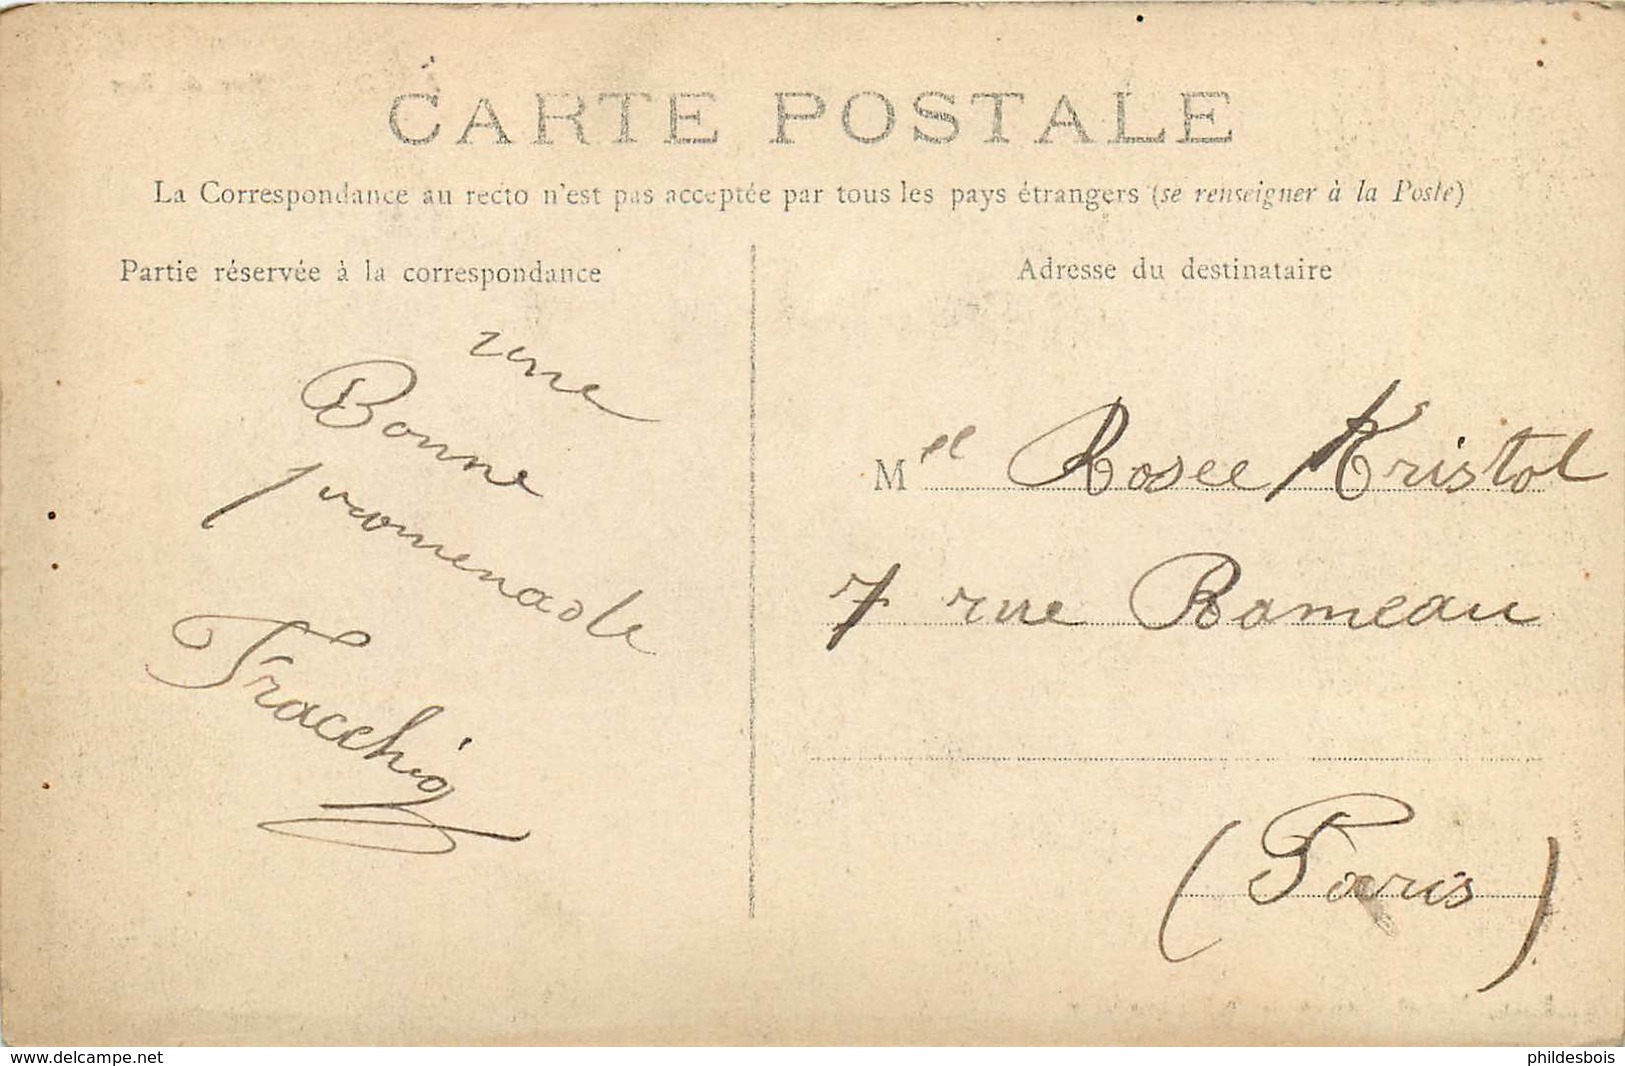 CARTE POSTALE
La Correspondance au recto n'est pas acceptée par tous les pays étrangers (se renseigner à la Poste)
Partie réservée à la correspondance
une
Bonne
promenade
Fracchia
Adresse du destinataire
Mel Rosee Kristol
7 rue Rameau
(Paris)
www.delcampe.net
phildesbois